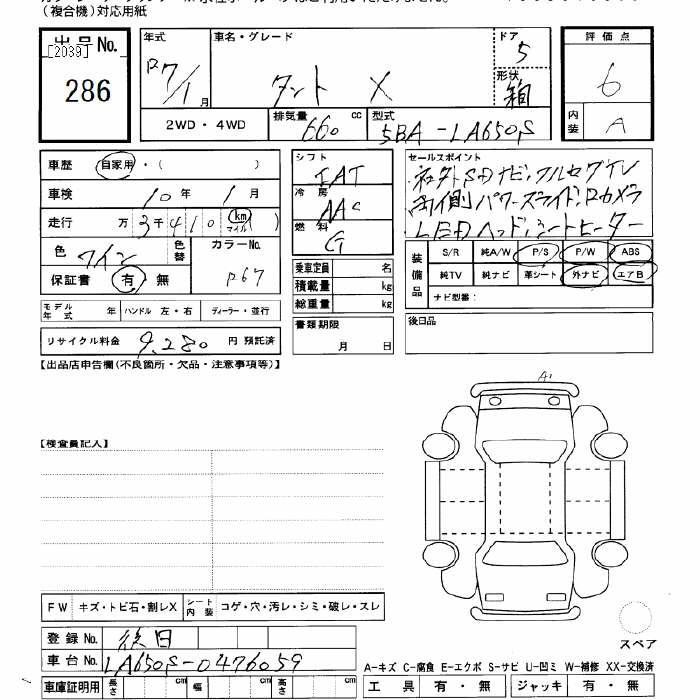 （複合機）対応用紙
出品No. [2039] 286
年式 R7/1月
車名・グレード タント X
ドア 5
形状 箱
評価点 6
内装 A
2WD・4WD
排気量 660 cc
型式 5BA-LA650S
車歴 自家用・（ ）
車検 10年 1月
走行 万3千410 (km マイル)
色 ワイン 色替
カラーNo. P67
保証書 有 無
モデル年式 年 ハンドル 左・右 ディーラー・並行
リサイクル料金 9,280 円 預託済
シフト IAT
冷房 AAC
燃料 G
乗車定員 名
積載量 kg
総重量 kg
書類期限
月 日
セールスポイント
社外SDナビ・フルセグTV
両側パワースライド・Bカメラ
LEDヘッド・シートヒーター
装備品
S/R 純A/W P/S P/W ABS
純TV 純ナビ 革シート 外ナビ エアB
ナビ型番：
後日品
【出品店申告欄（不良箇所・欠品・注意事項等）】
A1
【検査員記入】
FW キズ・トビ石・割レX シート内装 コゲ・穴・汚レ・シミ・破レ・スレ
登録No. 後日
車台No. LA650S-0476059
車庫証明用 長さ cm 幅 cm 高さ cm
スペア
A-キズ C-腐食 E-エクボ S-サビ U-凹ミ W-補修 XX-交換済
工具 有・無 ジャッキ 有・無